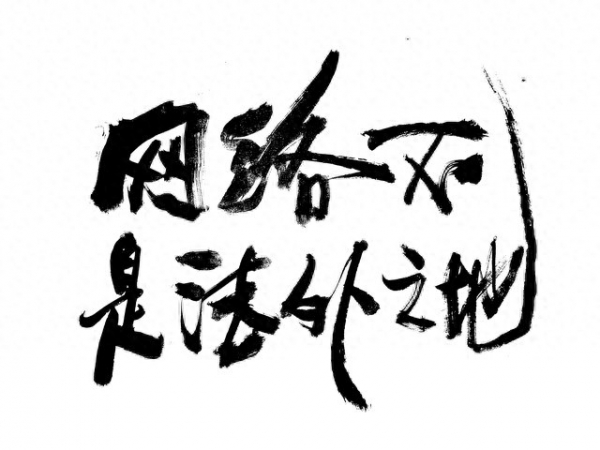 网络不
是法外之地